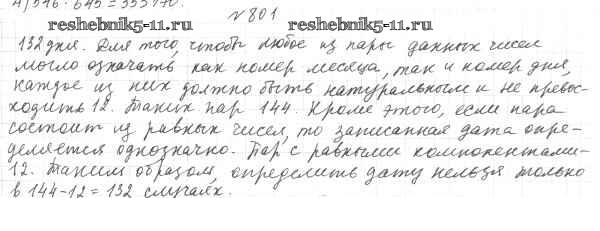 А) 516 · 645 = 333 770.
№ 801
reshebnik5-11.ru reshebnik5-11.ru
132 дня. Для того, чтобы любое из пары данных чисел
могло означать как номер месяца, так и номер дня,
каждое из них должно быть натуральным и не превос-
ходить 12. Таких пар 144. Кроме этого, если пара
состоит из равных чисел, то записанная дата опре-
деляется однозначно. Пар с равными компонентами -
12. Таким образом, определить дату нельзя только
в 144-12 = 132 случаях.